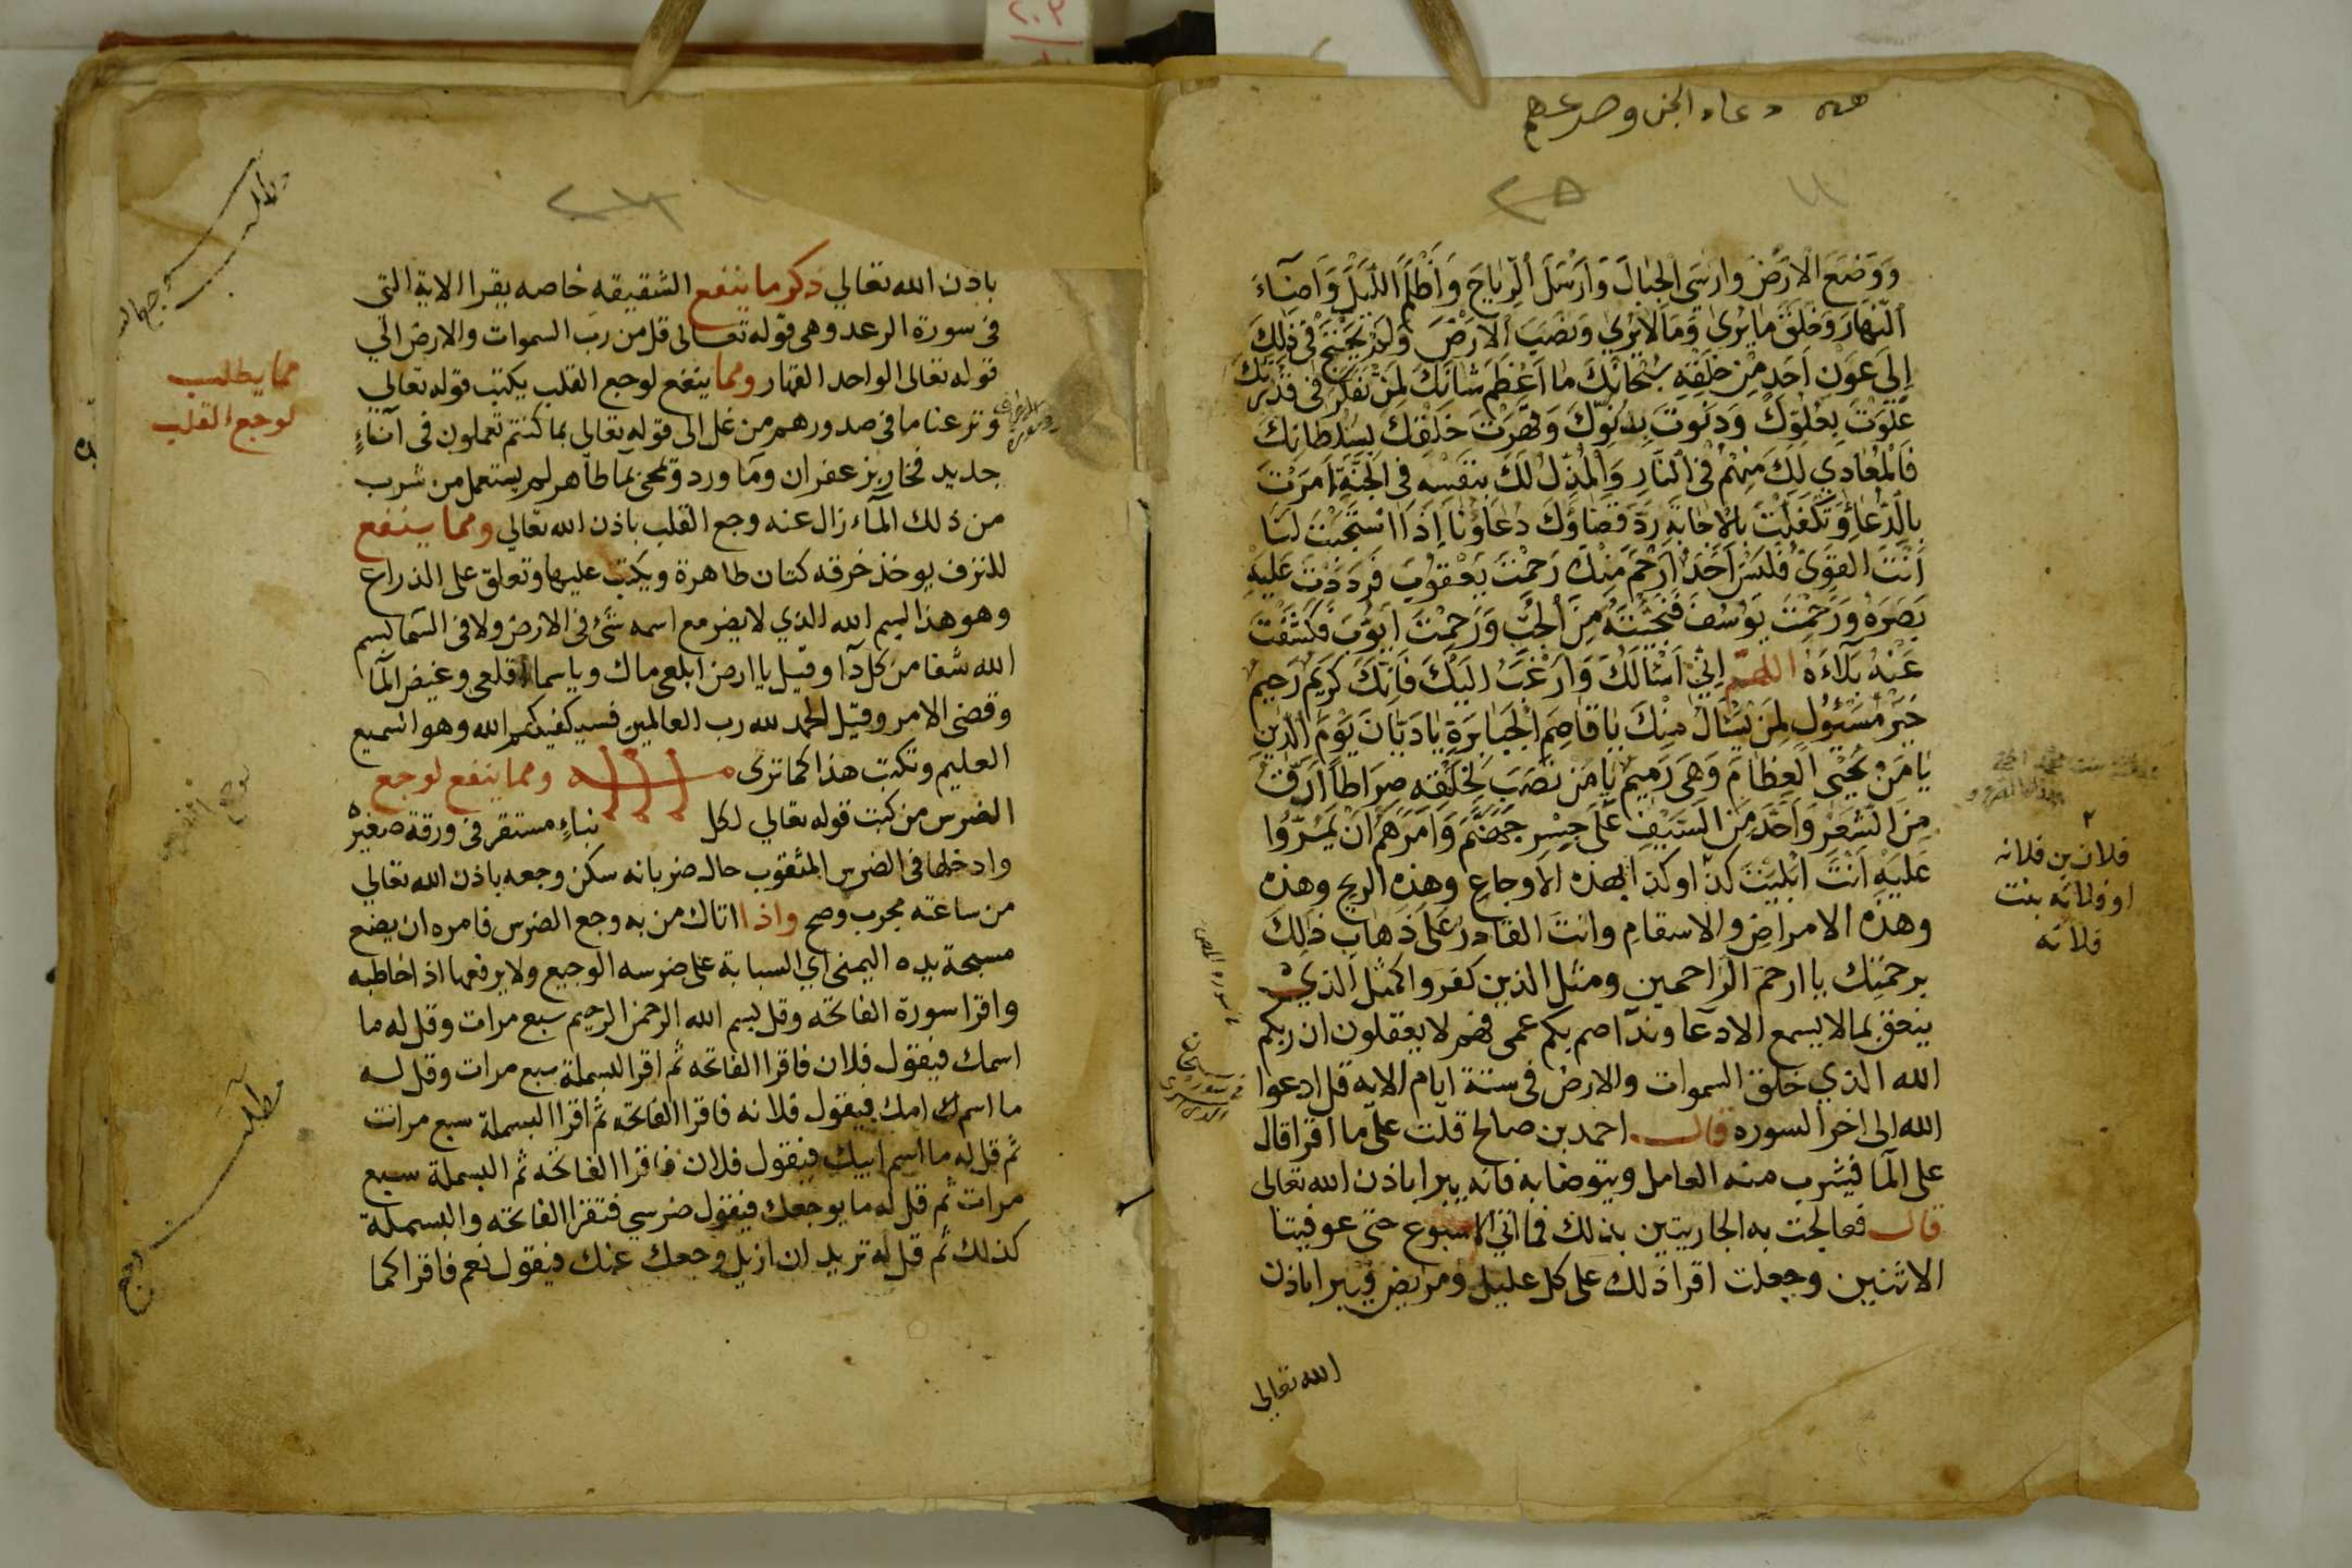 هذه دعاء الجن وصرعهم
٢٥
وَوَضَعَ الْاَرْضَ وارسَى الجبَالَ وَارْسَلَ الرِّيَاحَ وَاَظْلَمَ اللَّيْلَ وَاَضَآءَ
النَّهَارَ وَخَلَقَ مَا يُرىٰ وَمَا لَا يُرىٰ وَنصَبَ الاَرْضَ وَلَمْ يَحْتَجْ فِي ذٰلِكَ
اِلَى عَوْنِ اَحَدٍ مِّنْ خَلقِهِ سُبْحَانَكَ مَا اَعْظَمَ شَانَكَ لِمَنْ تَفَكَّرَ فى قُدْرَتِكَ
عَلَوْتَ بِعُلُوِّكَ وَدَنَوْتَ بِدُنُوِّكَ وَقَهَرْتَ خَلْقَكَ بِسُلْطَانِكَ
فَالْمُعَادِي لَكَ مِنْهُمْ فى النَّارِ وَالْمُذِلُ لَكَ بنَفْسِهِ فى الجَنَّةِ اَمَرْتَ
بالدُّعَآءِ وَتَكَفَّلْتَ بالاجَابَةِ رَدَّ قَضَاؤُكَ دُعَاؤُنَا اِذَا اسْتَجَبْتَ لَنَا
اَنْتَ القَوِىُّ فَلَيْسَ اَحَدٌ اَرْحَمَ مِنْكَ رَحِمْتَ يَعْقُوبَ فَرَدَدْتَ عَلَيْهِ
بَصَرَهُ وَرَحِمْتَ يُوسُفَ فَنَجَّيْتَهُ مِنَ الجُبِّ وَرَحِمْتَ اَيُّوبَ فكَشَفْتَ
عَنْهُ بَلَآءَهُ اللهمّ اِنِّي اَسْئَالُكَ وَاَرْغَبُ اِلَيْكَ فَاِنَّكَ كَرِيمٌ رَحِيمٌ
خَيرُ مَسْئُولٍ لِمَنْ يَسْئَالُ مِنْكَ يَا قَاصِمَ الجَبَابِرَةِ يَادَيَّانَ يَوْمَ الدِّينِ
يَا مَنْ يُحْيِى العِظَامَ وَهِىَ رَمِيمٌ يَا مَنْ نصَبَ لِخَلْقِهِ صِرَاطًا اَدَقَّ
مِنَ الشَّعَرِ وَاَحَدَّ مِنَ السَّيْفِ عَلَى جِسْرِ جَهَنَّمَ وَاَمَرَهُمْ اَنْ يَمُرُّوا
عَلَيْهِ اَنْتَ ابْلَيْتَ كذا وكذا بهذه الاوجاع وهذه الريح وهذه
وهذه الامراضِ والاسقامِ وانتَ القادرُ عَلَى ذَهَابِ ذٰلِكَ
برحمَتِك يا ارحمَ الرَّاحمين ومثل الذين كفروا كمثل الذي
ينعق بما لا يسمع الا دعا وندآ صم بكم عمى فهم لا يعقلون ان ربكم
الله الذي خلق السموات والارض فى ستة ايام الايه قل ادعوا
الله الى اخر السوره قال احمد بن صالح قلت على ما اقرا قال
على المآ فيشرب منه العامل ويتوضا به فانه يبرا باذن الله تعالى
قال فعالجت به الجاريتين بذلك فما اتى الاسبوع حتى عوفيتا
الاثنين وجعلت اقرا ذلك على كل عليل ومريض فيبرا باذن
الله تعالى
٢
فلان بن فلانه
او فلانه بنت
فلانه
باذن الله تعالي ذكر ما ينفع الشقيقه خاصه يقرا الاية التى
فى سورة الرعد وهى قوله تعالى قل من رب السموات والارض الي
قوله تعالى الواحد القهار ومما ينفع لوجع القلب يكتب قوله تعالي
ونزعنا ما فى صدورهم من غل الى قوله تعالي بما كنتم تعملون فى آناءٍ
جديد فخار بزعفران وما ورد وتمحى بما طاهر لم يستعمل من شرب
من ذلك المآء زال عنه وجع القلب باذن الله تعالي ومما ينفع
للنزف يوخذ خرقه كتان طاهرة ويكتب عليها وتعلق على الذراع
وهو هذا بسم الله الذي لا يضر مع اسمه شئ فى الارض ولا فى السما بسم
الله شفا من كل دآ وقيل يا ارض ابلعى ماك ويا سما اقلعى وغيض المآ
وقضى الامر وقيل الحمد لله رب العالمين فسيكفيكهم الله وهو السميع
العليم وتكتب هذا كما ترى ومما ينفع لوجع
الضرس من كتب قوله تعالي لكل نباءٍ مستقر فى ورقة صغيره
وادخلها فى الضرس المثقوب حال ضربانه سكن وجعه باذن الله تعالي
من ساعته مجرب وصح واذا اتاك من به وجع الضرس فامره ان يضع
مسبحة يده اليمنى اي السبابة على ضرسه الوجيع ولا يرفعها اذا خاطبه
واقرا سورة الفاتحه وقل بسم الله الرحمن الرحيم سبع مرات وقل له ما
اسمك فيقول فلان فاقرا الفاتحه ثم اقرا البسملة سبع مرات وقل له
ما اسم امك فيقول فلانه فاقرا الفاتحه ثم اقرا البسملة سبع مرات
ثم قل له ما اسم ابيك فيقول فلان فاقرا الفاتحه ثم البسملة سبع
مرات ثم قل له ما يوجعك فيقول ضرسي فتقرا الفاتحه والبسملة
كذلك ثم قل له تريد ان ازيل وجعك عنك فيقول نعم فاقرا كما
مطلب
مما يطلب
لوجع القلب
مطلب